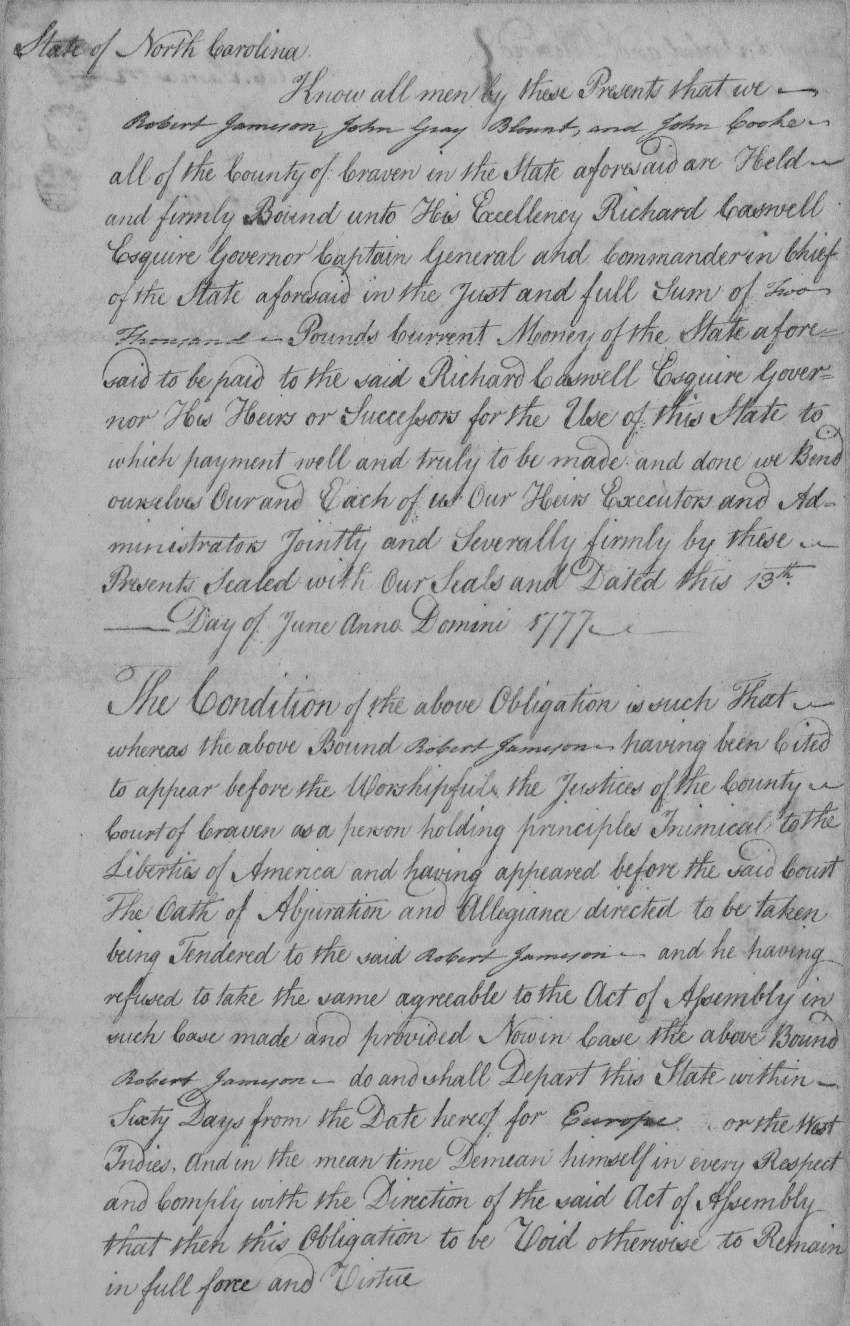 State of North Carolina.
Know all men by these Presents that we
Robert Jameson, John Gray Blount, and John Cooke
all of the County of Craven in the State aforesaid are Held
and firmly Bound unto His Excellency Richard Caswell
Esquire Governor Captain General and Commander in Chief
of the State aforesaid in the Just and full Sum of Two
Thousand Pounds Current Money of the State afore=
said to be paid to the said Richard Caswell Esquire Gover=
nor His Heirs or Successors for the Use of this State to
which payment well and truly to be made and done we Bind
ourselves Our and Each of us Our Heirs Executors and Ad-
ministrators Jointly and Severally firmly by these
Presents Sealed with Our Seals and Dated this 13th.
Day of June Anno Domini 1777
The Condition of the above Obligation is such That
whereas the above Bound Robert Jameson having been Cited
to appear before the Worshipful the Justices of the County
Court of Craven as a person holding principles Inimical to the
Liberties of America and having appeared before the said Court
The Oath of Abjuration and Allegiance directed to be taken
being Tendered to the said Robert Jameson and he having
refused to take the same agreeable to the Act of Assembly in
such Case made and provided Now in Case the above Bound
Robert Jameson do and shall Depart this State within
Sixty Days from the Date hereof for Europe or the West
Indies, and in the mean time Demean himself in every Respect
and Comply with the Direction of the said Act of Assembly
that then this Obligation to be Void otherwise to Remain
in full force and Virtue